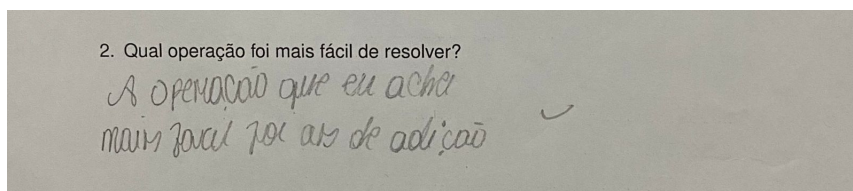 2. Qual operação foi mais fácil de resolver?
A operação que eu achei
mais facil foi as de adição